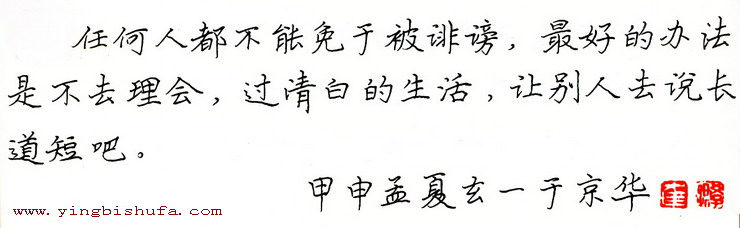 任何人都不能免于被诽谤，最好的办法
是不去理会，过清白的生活，让别人去说长
道短吧。
甲申孟夏玄一于京华
www.yingbishufa.com